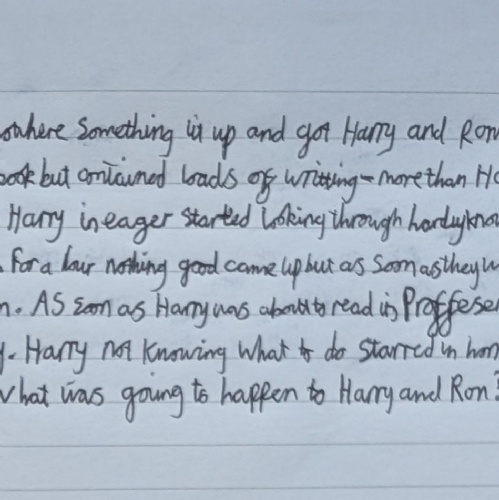 where something lit up and got Harry and Ron
book but contained loads of writting - more than
Harry in eager started looking through
. For a hour nothing good came up but as soon as they
. AS soon as Harry was about to read it, Proffeser
. Harry not knowing what to do starred in
what was going to happen to Harry and Ron?